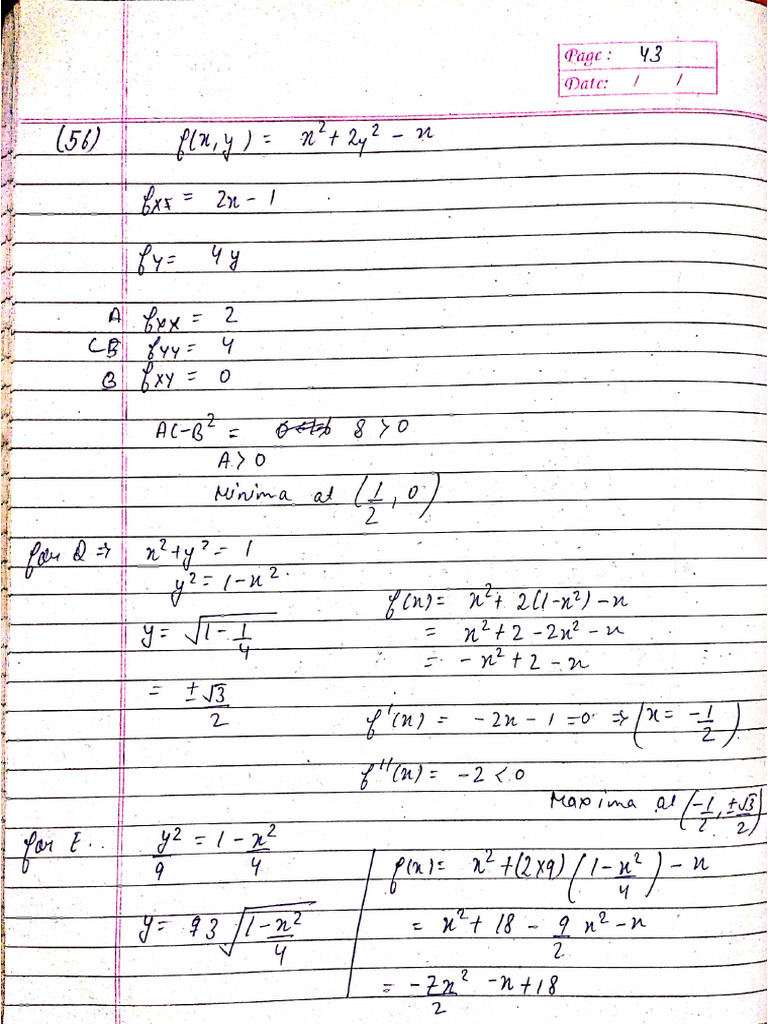 Page : 43
Date: / /
(56) f(x,y) = x² + 2y² - x
fxx = 2x - 1
fy = 4y
A fxx = 2
CB fyy = 4
B fxy = 0
AC-B² = 8 > 0
A > 0
Minima at (1/2, 0)
for D ⇒ x² + y² = 1
y² = 1 - x²
f(x) = x² + 2(1-x²) - x
y = √(1 - 1/4)
= x² + 2 - 2x² - x
= - x² + 2 - x
= ±√3/2
f'(x) = -2x - 1 = 0 ⇒ (x = -1/2)
f''(x) = -2 < 0
Maxima at (-1/2, ±√3/2)
for E.. y²/9 = 1 - x²/4
f(x) = x² + (2×9)(1 - x²/4) - x
y = 93√(1 - x²/4)
= x² + 18 - 9/2 x² - x
= -7x²/2 - x + 18